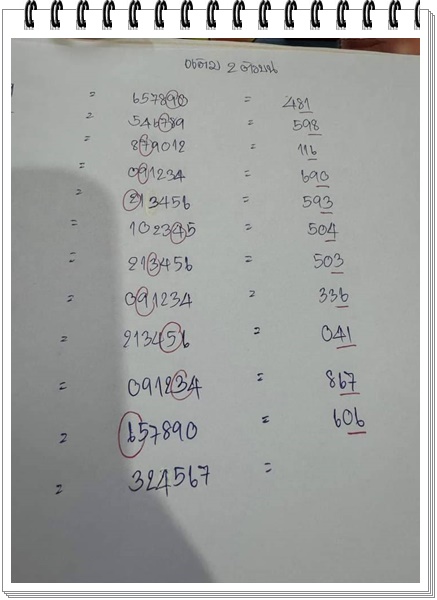 เด่น 2 ตัวบน
= 657890 = 481
= 546789 = 598
= 879012 = 116
= 091234 = 690
= 213456 = 593
= 102345 = 504
= 213456 = 503
= 091234 = 336
= 213456 = 041
= 091234 = 867
= 657890 = 606
= 324567 =